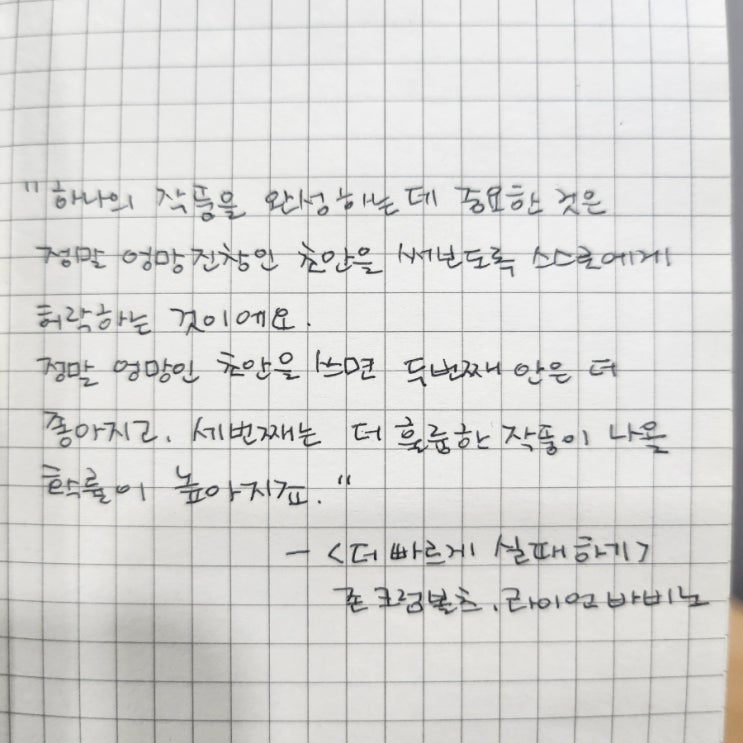 "하나의 작품을 완성하는데 중요한 것은
정말 엉망진창인 초안을 써보도록 스스로에게
허락하는 것이에요.
정말 엉망인 초안을 쓰면 두번째 안은 더
좋아지고, 세번째는 더 훌륭한 작품이 나올
확률이 높아지죠."
- <더 빠르게 실패하기>
존 크럼볼츠, 라이언 바비노